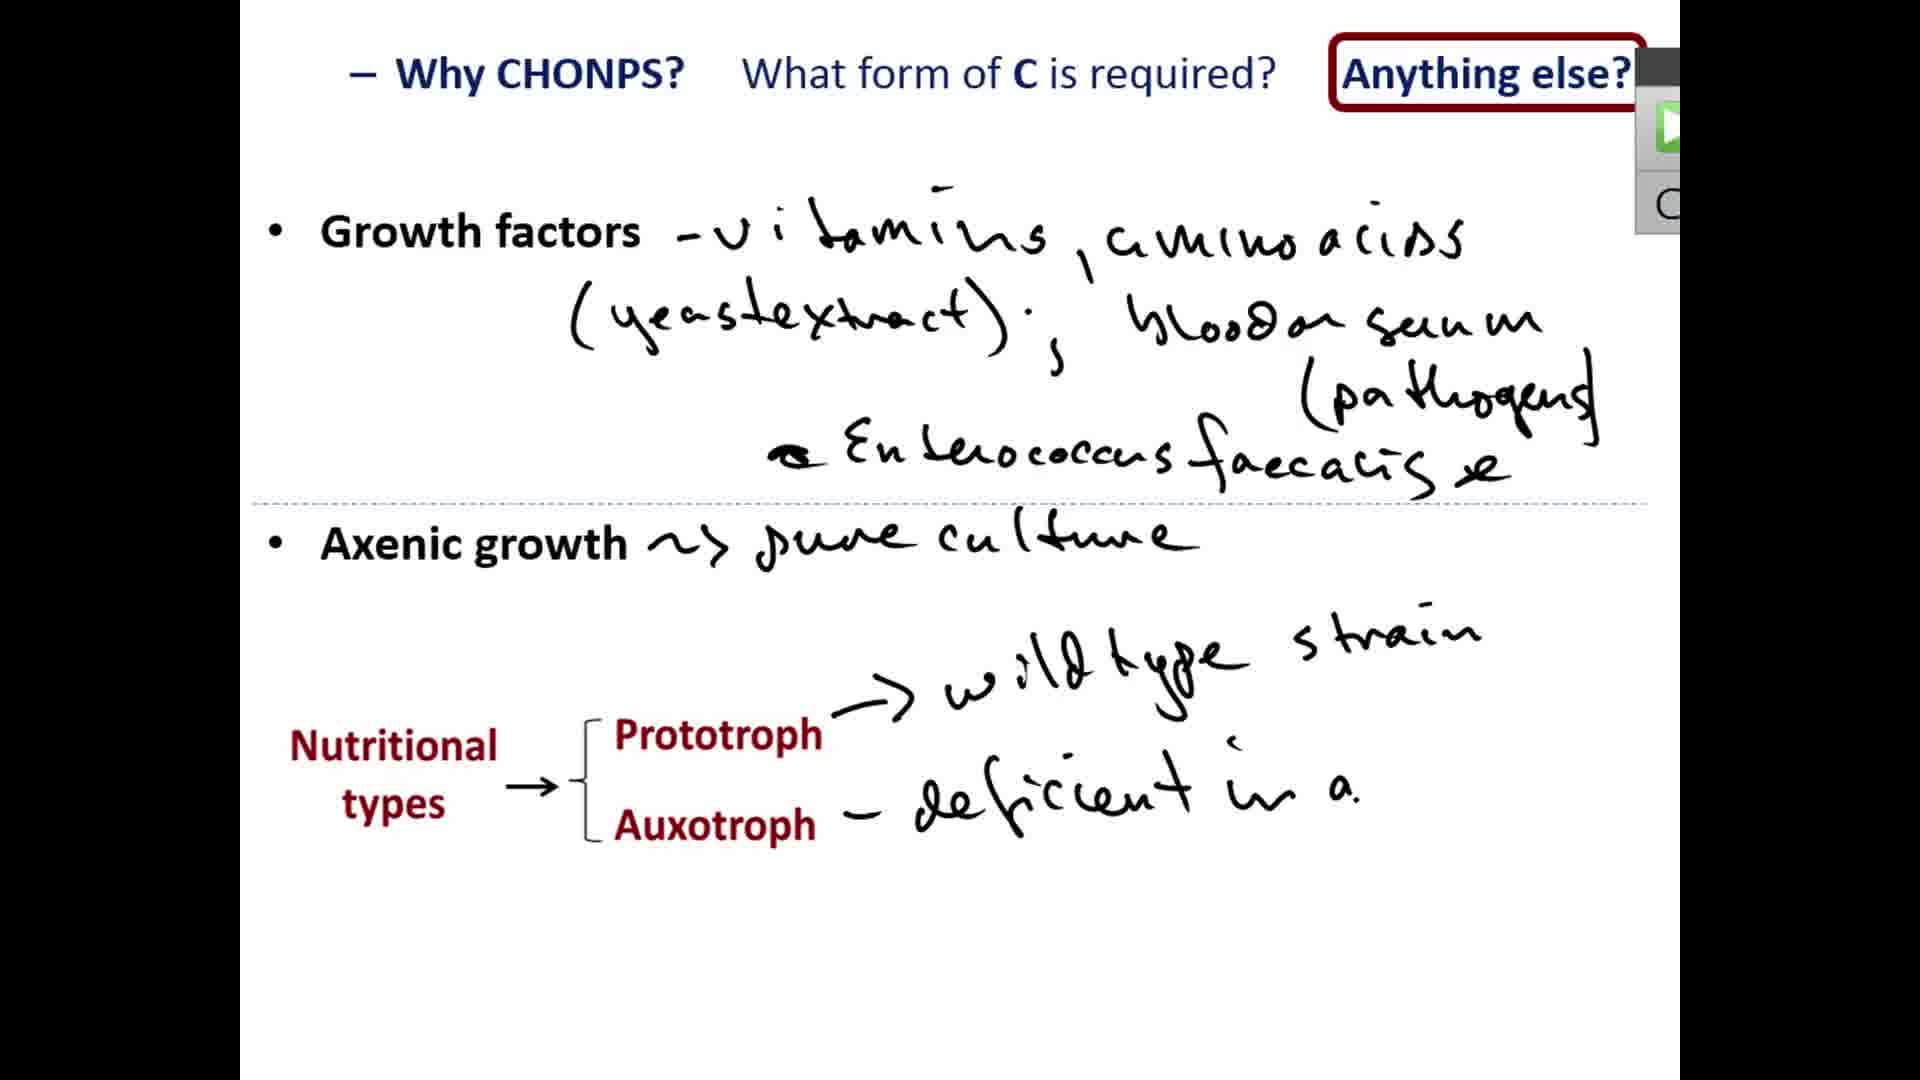 – Why CHONPS? What form of C is required? Anything else?
• Growth factors - vitamins, aminoacids
(yeast extract); blood or serum
(pathogens)
- Enterococcus faecalis
• Axenic growth ~> pure culture
→ wild type strain
Nutritional types → Prototroph
Auxotroph - deficient in a